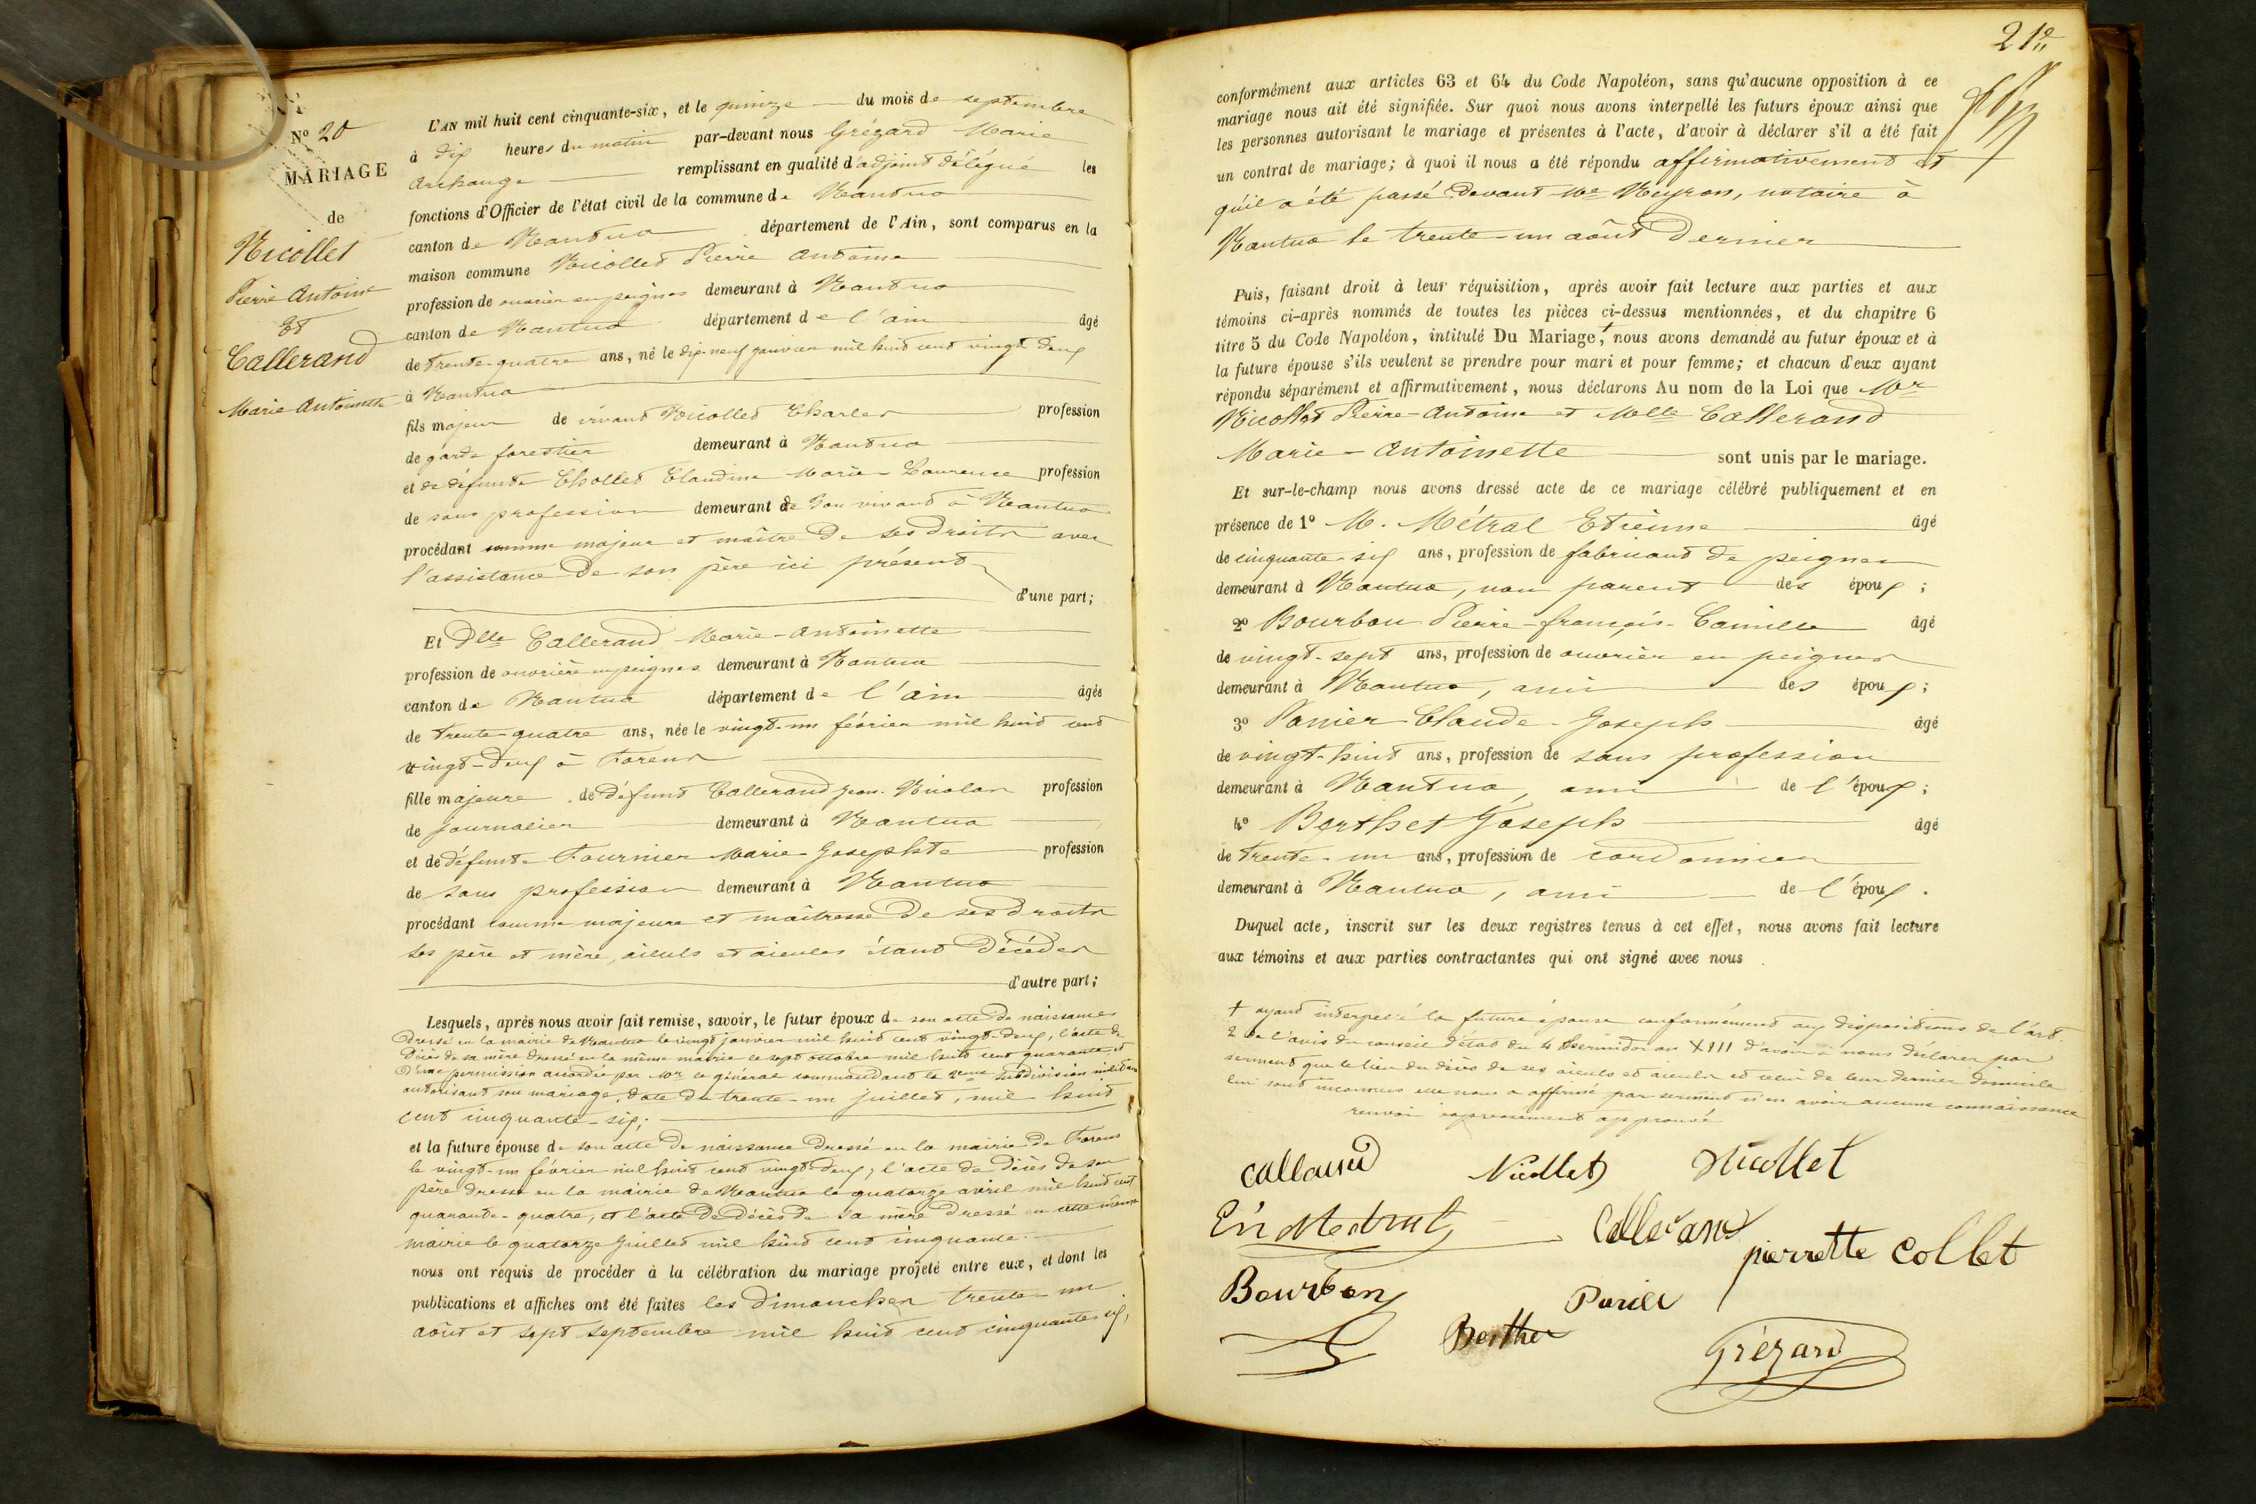 N° 20
MARIAGE
de
Nicollet
Pierre Antoine
Et
Callerand
Marie Antoinette
L'AN mil huit cent cinquante-six, et le quinze du mois de septembre
à dix heures du matin par-devant nous Grézard Marie
Archange remplissant en qualité d'adjoint délégué les
fonctions d'Officier de l'état civil de la commune de Nantua
canton de Nantua département de l'Ain, sont comparus en la
maison commune Nicollet Pierre Antoine
profession de ouvrier en peignes demeurant à Nantua
canton de Nantua département de l'ain âgé
de trente-quatre ans, né le dix-neuf janvier mil huit cent vingt deux
à Nantua
fils majeur de vivant Nicollet Charles profession
de garde forestier demeurant à Nantua
et de défunte Chollet Claudine Marie-Laurence profession
de sans profession demeurant de son vivant à Nantua
procédant comme majeur et maître de ses droits avec
l'assistance de son père ici présent
d'une part;
Et Dlle Callerand Marie-Antoinette
profession de ouvrière en peignes demeurant à Nantua
canton de Nantua département de l'ain âgée
de trente-quatre ans, née le vingt-un février mil huit cent
vingt-deux à Forens
fille majeure de défunt Callerand Jean-Nicolas profession
de journalier demeurant à Nantua
et de défunte Fournier Marie-Josephte profession
de sans profession demeurant à Nantua
procédant comme majeure et maîtresse de ses droits
ses père et mère, aïeuls et aieules étant décédés
d'autre part;
Lesquels, après nous avoir fait remise, savoir, le futur époux de son acte de naissance
dressé en la mairie de Nantua le vingt janvier mil huit cent vingt-deux, l'acte de
décès de sa mère dressé en la même mairie le sept octobre mil huit cent quarante, et
d'une permission accordée par Mr le général commandant la 2eme subdivision militaire
autorisant son mariage, date du trente-un juillet, mil huit
cent cinquante-six;
et la future épouse de son acte de naissance dressé en la mairie de Forens
le vingt-un février mil huit cent vingt-deux; l'acte de décès de son
père dressé en la mairie de Nantua le quatorze avril mil huit cent
quarante-quatre, et l'acte de décès de sa mère dressé en cette même
mairie le quatorze juillet mil huit cent cinquante.
nous ont requis de procéder à la célébration du mariage projeté entre eux, et dont les
publications et affiches ont été faites les dimanches trente-un
août et sept septembre mil huit cent cinquante six,
21e
conformément aux articles 63 et 64 du Code Napoléon, sans qu'aucune opposition à ce
mariage nous ait été signifiée. Sur quoi nous avons interpellé les futurs époux ainsi que
les personnes autorisant le mariage et présentes à l'acte, d'avoir à déclarer s'il a été fait
un contrat de mariage; à quoi il nous a été répondu affirmativement et
qu'il a été passé devant Me Neyron, notaire à
Nantua le trente-un août dernier
Puis, faisant droit à leur réquisition, après avoir fait lecture aux parties et aux
témoins ci-après nommés de toutes les pièces ci-dessus mentionnées, et du chapitre 6
titre 5 du Code Napoléon, intitulé Du Mariage,+ nous avons demandé au futur époux et à
la future épouse s'ils veulent se prendre pour mari et pour femme; et chacun d'eux ayant
répondu séparément et affirmativement, nous déclarons Au nom de la Loi que Mr
Nicollet Pierre-Antoine et Melle Callerand
Marie-Antoinette sont unis par le mariage.
Et sur-le-champ nous avons dressé acte de ce mariage célébré publiquement et en
présence de 1° M. Métral Etienne âgé
de cinquante-six ans, profession de fabricant de peignes
demeurant à Nantua, non parent des époux;
2° Bourbon Pierre-françois-Camille âgé
de vingt-sept ans, profession de ouvrier en peignes
demeurant à Nantua, ami des époux;
3° Ponier Claude-Joseph âgé
de vingt-huit ans, profession de sans profession
demeurant à Nantua, ami de l'époux;
4° Berthet Joseph âgé
de trente-un ans, profession de cordonnier
demeurant à Nantua, ami de l'époux.
Duquel acte, inscrit sur les deux registres tenus à cet effet, nous avons fait lecture
aux témoins et aux parties contractantes qui ont signé avec nous.
+ ayant interpellé la future épouse conformément aux dispositions de l'art.
2 de l'avis du conseil d'état du 4 thermidor an XIII d'avoir à nous déclarer par
serment que le lieu du décès de ses aieuls et aieules et celui de leur dernier domicile
lui sont inconnus elle nous a affirmé par serment n'en avoir aucune connaissance
renvoi expressément approuvé
Nicollet
Nicollet
En Metral
Callerand
pierrette Collet
Bourbon
Berthet
Grézard